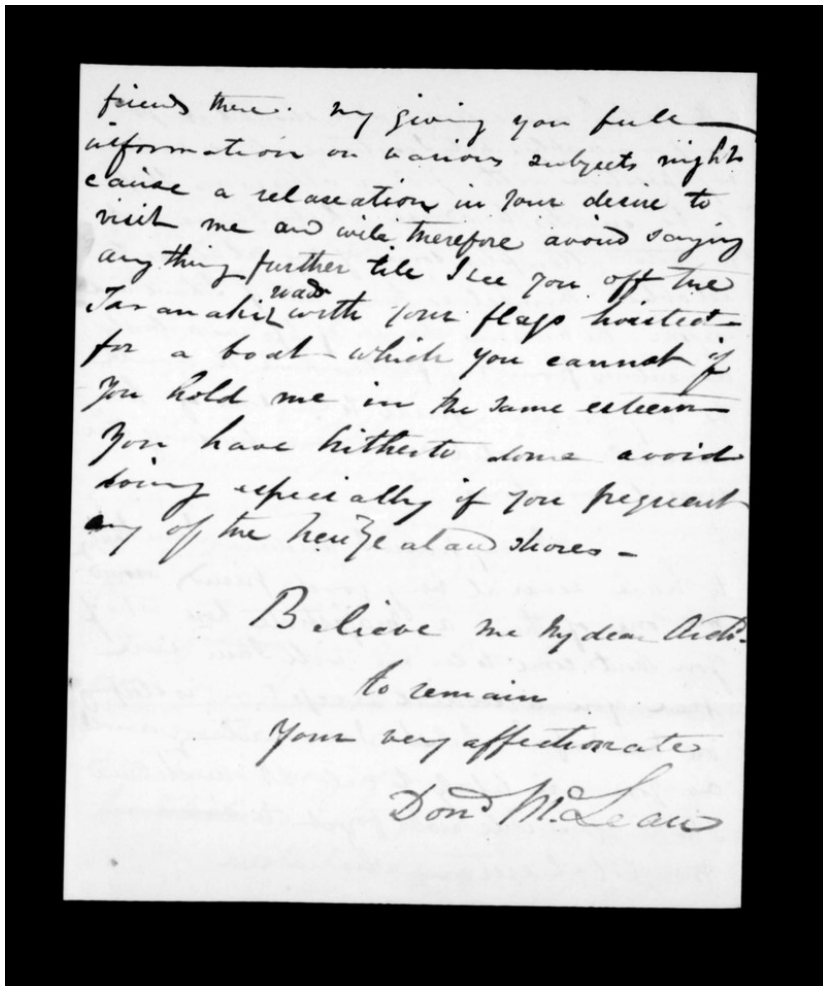 friends there. My giving you full
information on various subjects might
cause a relaxation in your desire to
visit me and will therefore avoid saying
any thing further till I see you off the
Taranaki roads with your flags hoisted
for a boat which you cannot if
you hold me in the same esteem
you have hitherto done avoid
doing especially if you frequent
any of the New Zealand shores –
Believe me My dear Archd.
to remain
Your very affectionate
Dond. McLean